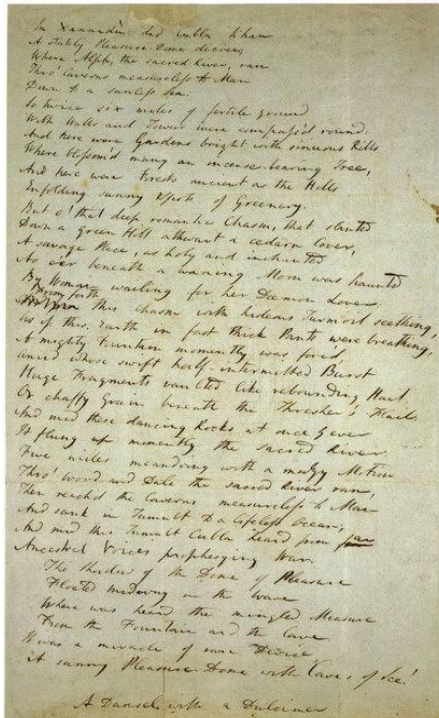 In Xannadù did Cubla Khan
A stately Pleasure Dome decree,
Where Alph, the sacred River, ran
Thro' Caverns measureless to Man
Down to a sunless Sea.
So twice six miles of fertile ground
With Walls and Towers were compass'd round:
And here were Gardens bright with sinuous Rills
Where blossom'd many an incense-bearing Tree,
And here were Forests ancient as the Hills
Enfolding sunny Spots of Greenery.
But o! that deep romantic Chasm, that slanted
Down a green Hill athwart a cedarn Cover,
A savage Place, as holy and inchanted
As e'er beneath a waning Moon was haunted
By Woman wailing for her Daemon Lover:
From forth this Chasm with hideous Turmoil seething,
As if this Earth in fast thick Pants were breathing,
A mighty Fountain momently was forc'd,
Amid whose swift half-intermitted Burst
Huge Fragments vaulted like rebounding Hail,
Or chaffy Grain beneath the Thresher's Flail.
And mid these dancing Rocks at once & ever
It flung up momently the sacred River.
Five miles meandring with a mazy Motion
Thro' Wood and Dale the sacred River ran,
Then reach'd the Caverns measureless to Man
And sank in Tumult to a lifeless Ocean;
And mid this Tumult Cubla heard from far
Ancestral Voices prophesying War.
The Shadow of the Dome of Pleasure
Floated midway on the Wave
Where was heard the mingled Measure
From the Fountain and the Cave.
It was a miracle of rare Device
A sunny Pleasure-Dome with Caves of Ice!
A Damsel with a Dulcimer